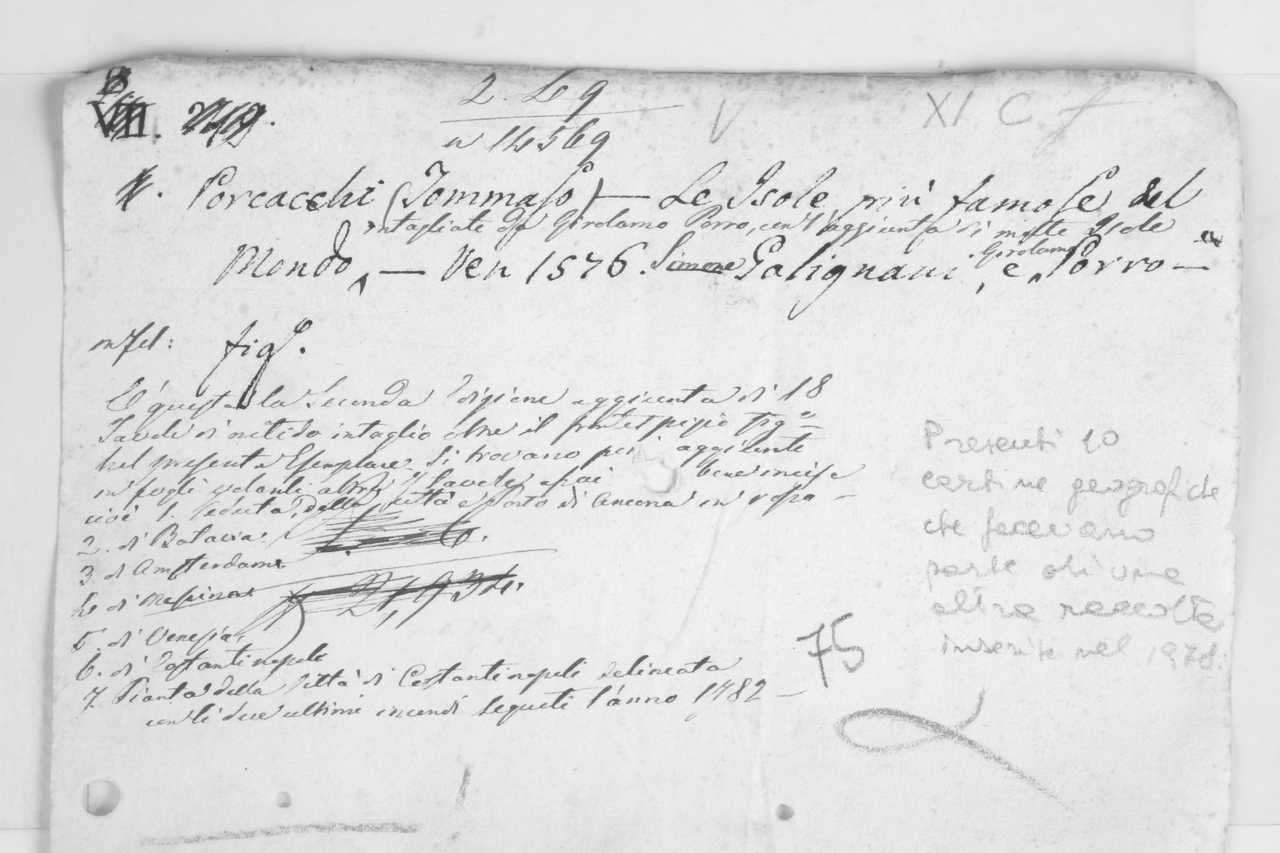 2. Lq
n 14569
XI C f
Porcacchi (Tommaso) — Le Isole più famose del
intagliate da Girolamo Porro, con l'aggiunta di molte Isole
Mondo, — Ven 1576. Simone Galignani, e Girolamo Porro —
in fol: fig.
E' questa la Seconda Edizione aggiunta di 18
Tavole di nitido intaglio oltre il frontespizio fig.
Nel presente Esemplare si trovano poi aggiunte
in fogli volanti altre 7 Tavole assai bene incise
cioè 1. Veduta della città e porto di Ancona in
2. di Batavia.
3. di Amsterdam
4. di Messina
5. di Venezia
6. di Costantinopoli
7. Pianta della Città di Costantinopoli delineata
con li due ultimi incendi seguiti l'anno 1782 —
Presenti 10
cartine geografiche
che facevano
parte di una
altra raccolta
inserite nel 1978.
75